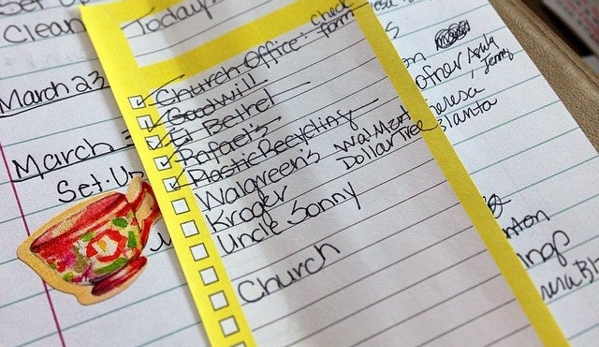 Set Up
Clean
March 23
March
Set-Up
Today
Church Office: check form
Goodwill
El Bethel
Rafael's
Plastic Recycling
Walgreen's Walmart
Kroger Dollar Tree
Uncle Sonny
Church
on
Jenny
Theresa
Atlanta
nton
ings